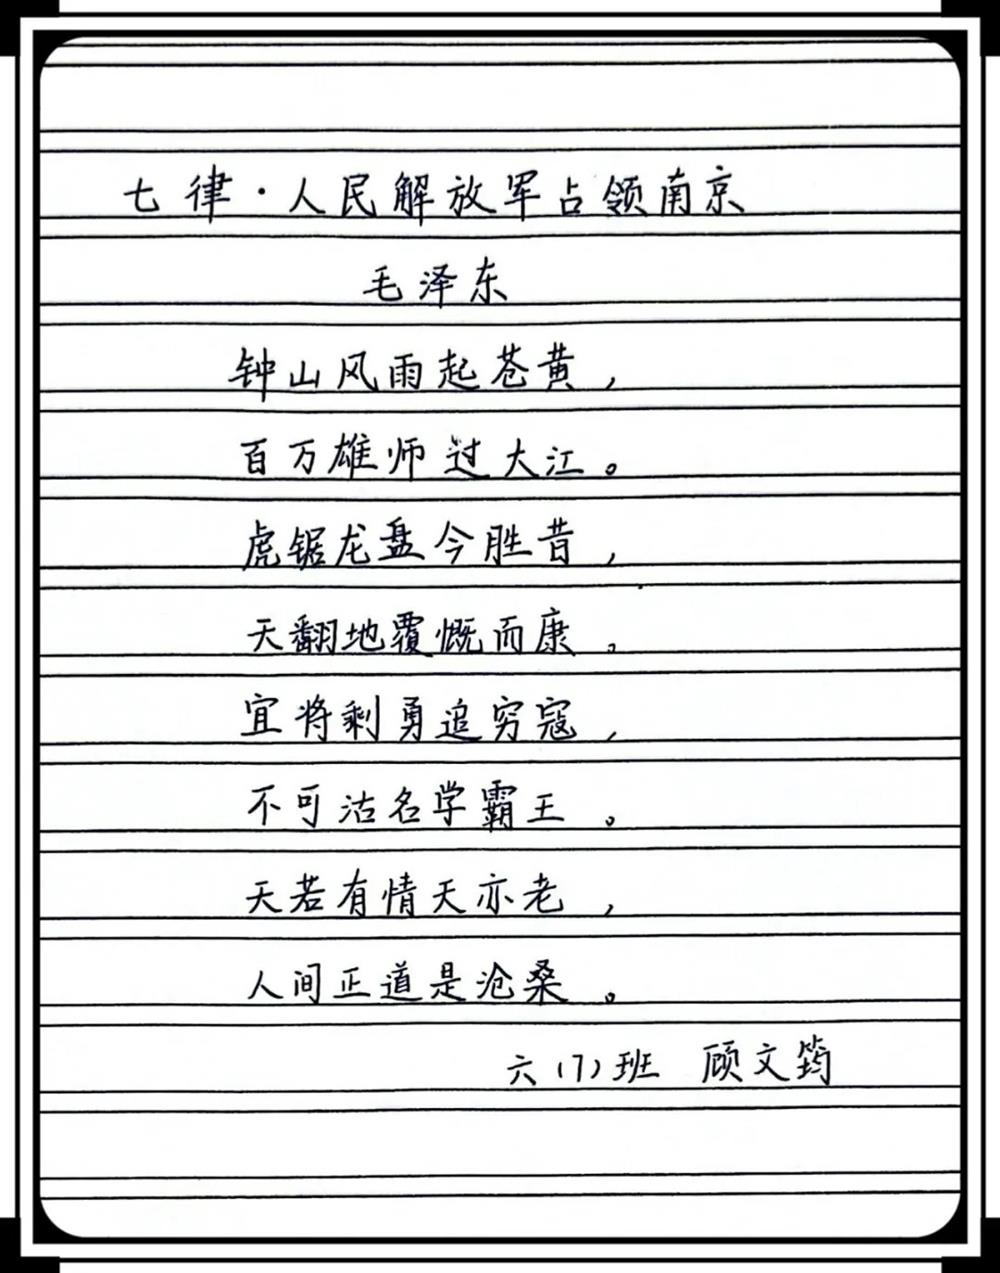 七律·人民解放军占领南京
毛泽东
钟山风雨起苍黄，
百万雄师过大江。
虎锯龙盘今胜昔，
天翻地覆慨而康。
宜将剩勇追穷寇，
不可沽名学霸王。
天若有情天亦老，
人间正道是沧桑。
六（7）班 顾文筠